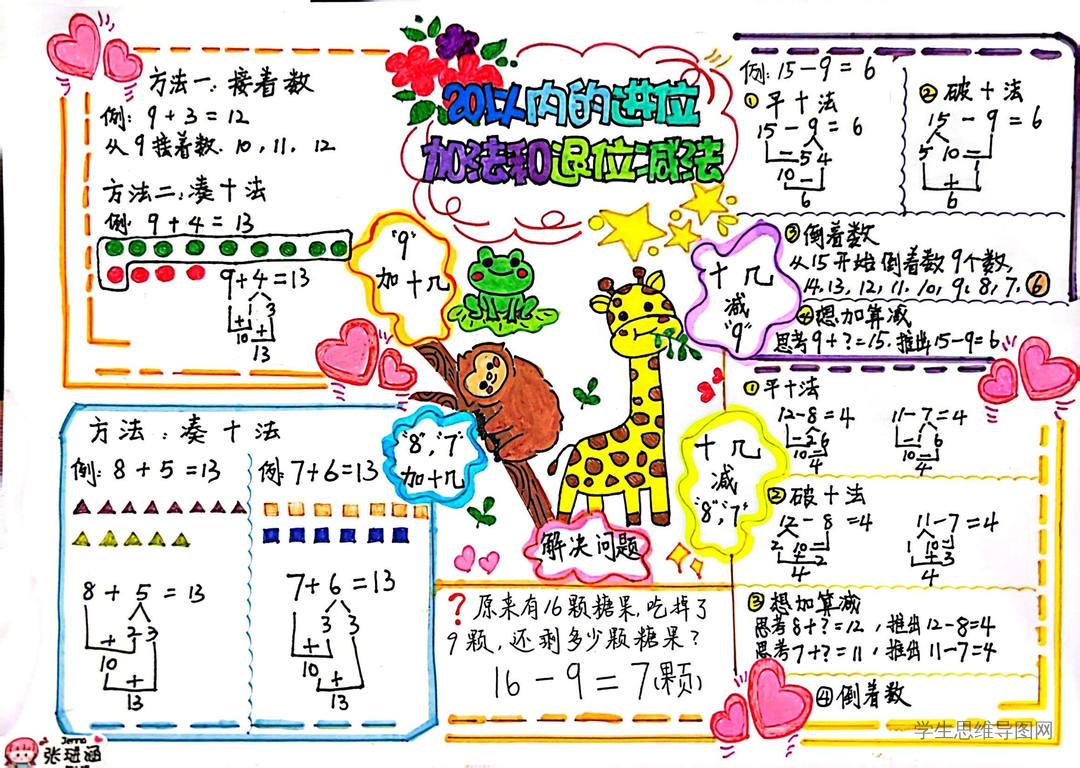 20以内的进位
加法和退位减法
方法一:接着数
例:9+3=12
从9接着数.10,11,12
方法二:凑十法
例:9+4=13
9+4=13
1 3
+
10
+
13
"9"
加十几
方法:凑十法
例:8+5=13
8+5=13
2 3
+
10
+
13
例:7+6=13
7+6=13
3 3
+
10
+
13
"8","7"
加十几
例:15-9=6
①平十法
15-9=6
-5 4
10-
6
②破十法
15-9=6
5 10-
+
6
③倒着数
从15开始倒着数9个数,
14,13,12,11,10,9,8,7,6
④想加算减
思考9+?=15,推出15-9=6
十几
减
"9"
①平十法
12-8=4
-2 6
10-
4
11-7=4
-1 6
10-
4
②破十法
12-8=4
2 10-
+2
4
11-7=4
1 10-
+3
4
③想加算减
思考8+?=12,推出12-8=4
思考7+?=11,推出11-7=4
④倒着数
十几
减
"8","7"
解决问题
?原来有16颗糖果,吃掉了
9颗,还剩多少颗糖果?
16-9=7(颗)
学生思维导图网